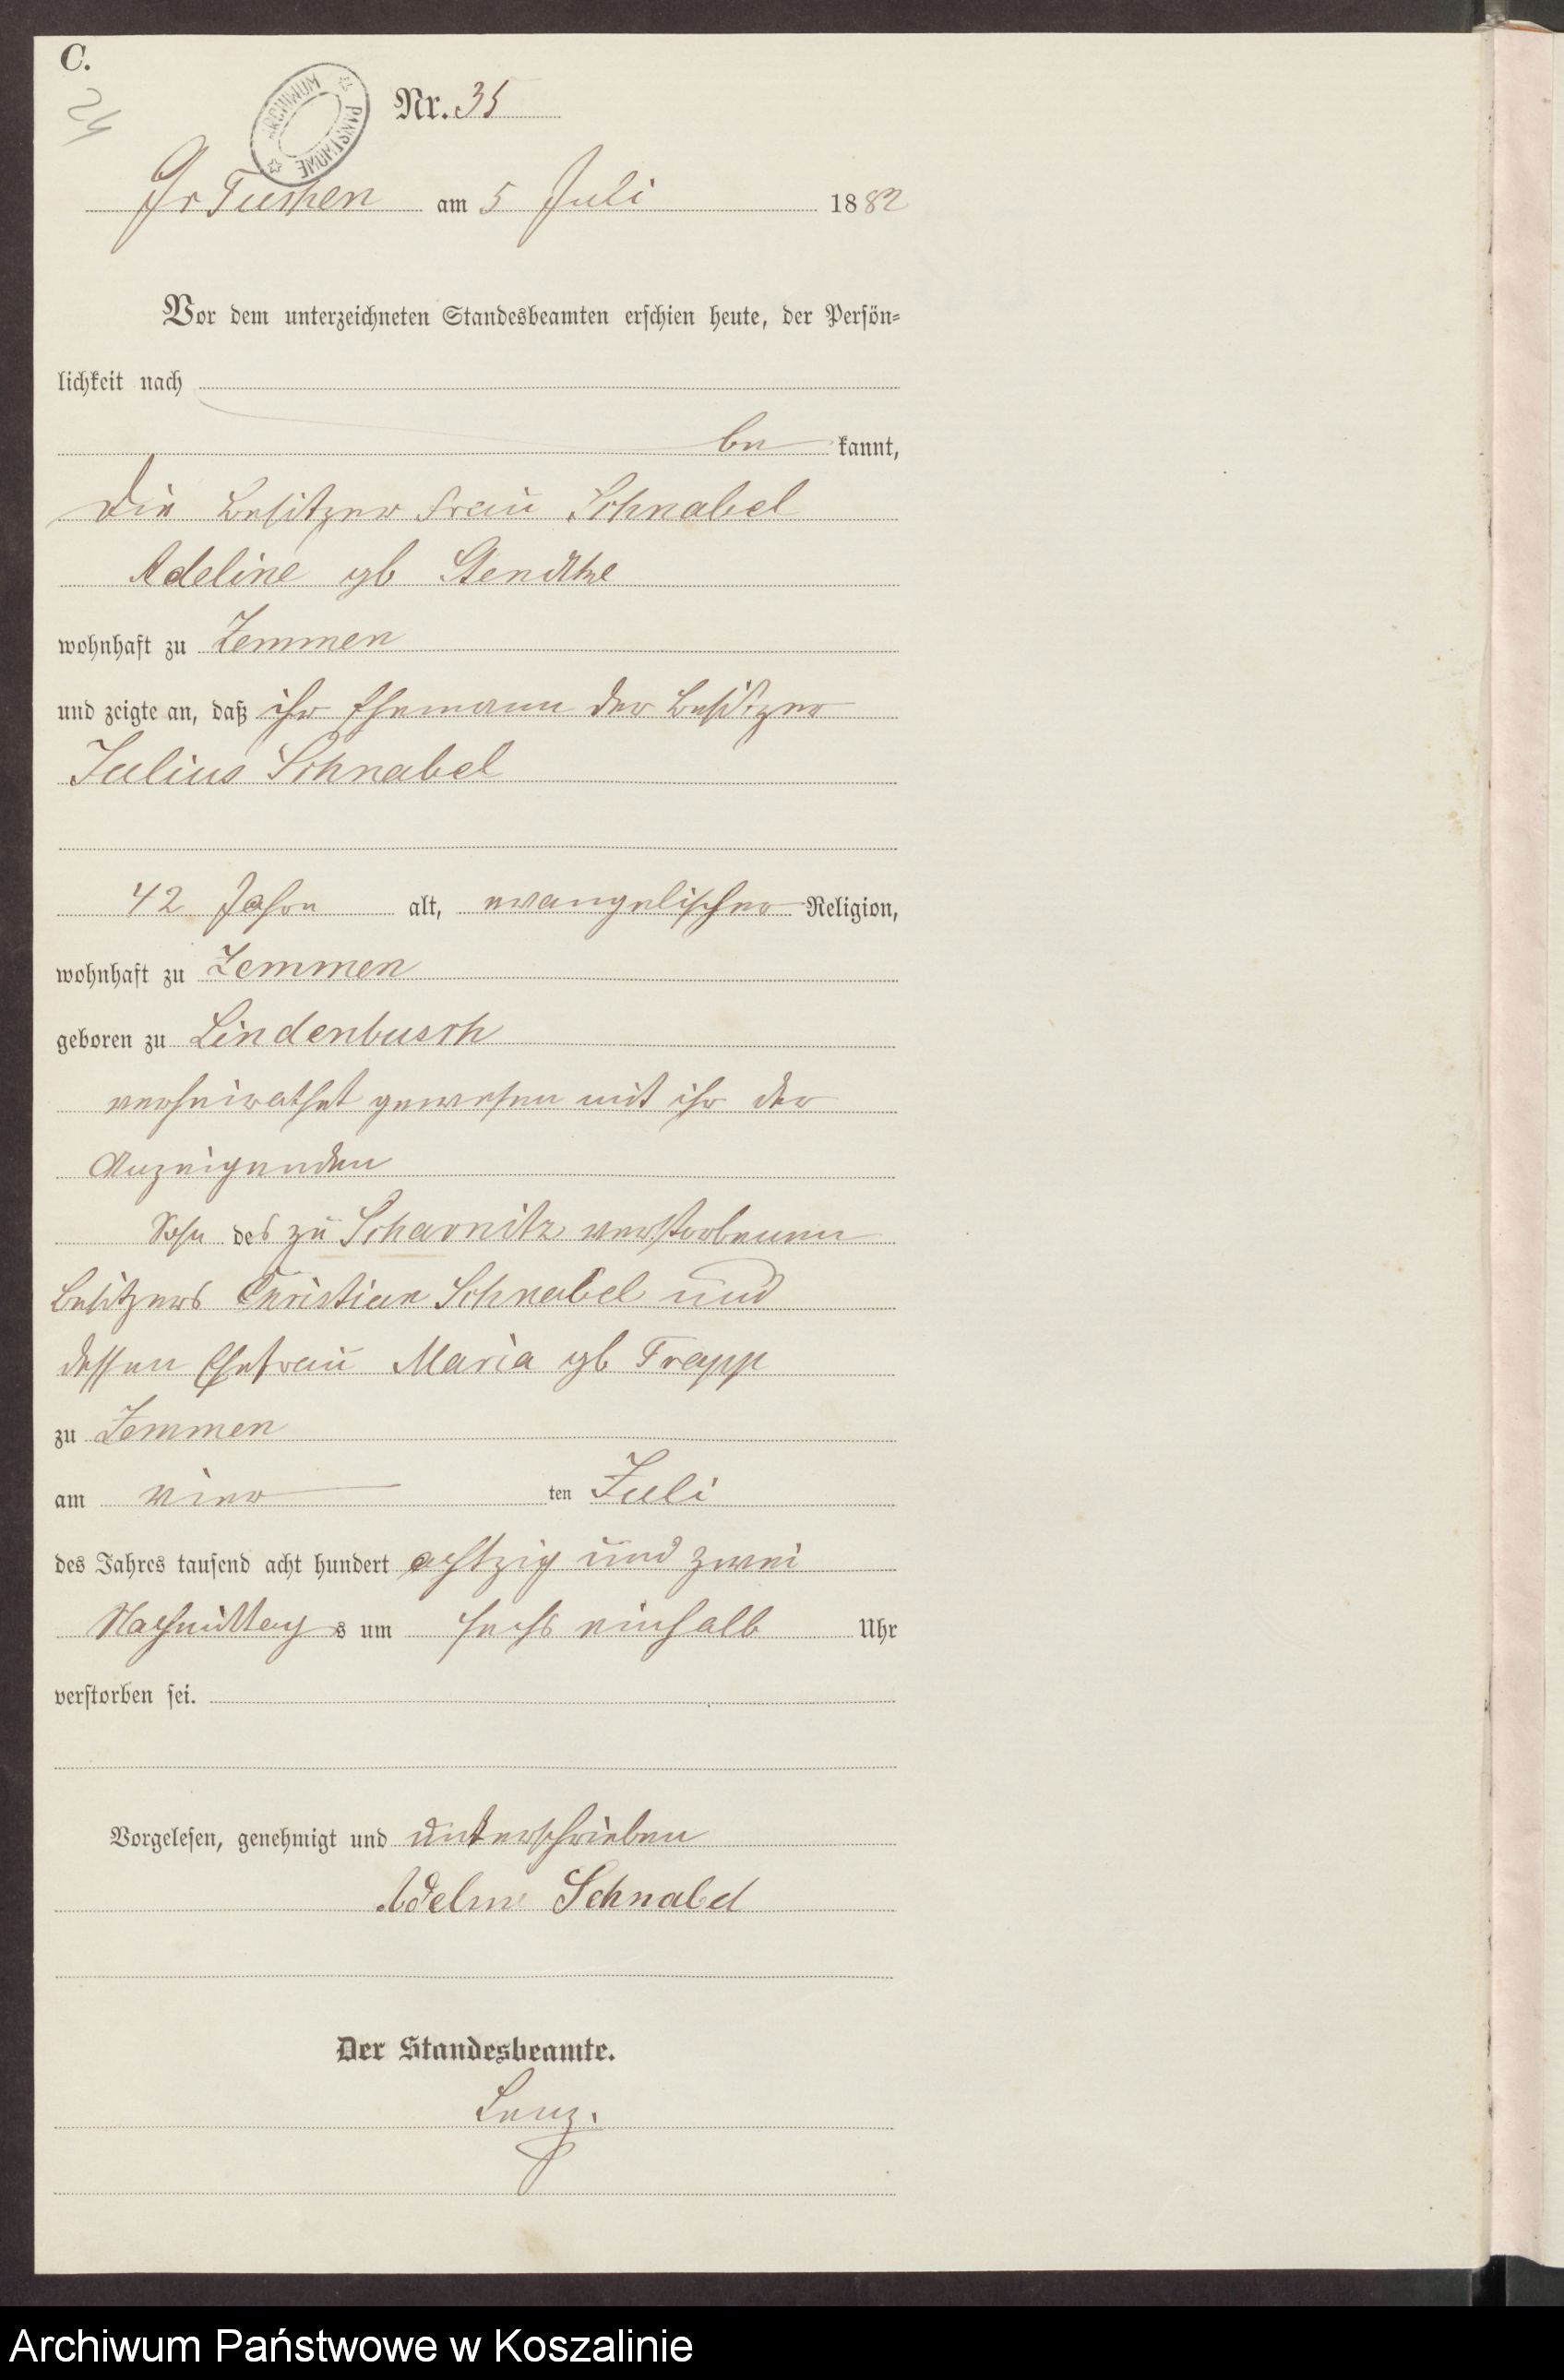 C.
24
ARCHIWUM PAŃSTWOWE
Nr. 35
Gr Tuchen am 5 Juli 1882
Vor dem unterzeichneten Standesbeamten erschien heute, der Persön-
lichkeit nach
be kannt,
die Besitzer Frau Schnabel
Adeline gb
wohnhaft zu Zemmen
und zeigte an, daß ihr Ehemann der Besitzer
Julius Schnabel
42 Jahre alt, evangelischer Religion,
wohnhaft zu Zemmen
geboren zu Lindenbusch
verheirathet gewesen mit ihr der
Anzeigenden
Sohn des zu Scharnitz verstorbenen
Besitzers Christian Schnabel und
dessen Ehefrau Maria gb Trapp
zu Zemmen
am vier ten Juli
des Jahres tausend acht hundert achtzig und zwei
Nachmittag s um sechs einhalb Uhr
verstorben sei.
Vorgelesen, genehmigt und unterschrieben
Schnabel
Der Standesbeamte.
Lenz.
Archiwum Państwowe w Koszalinie